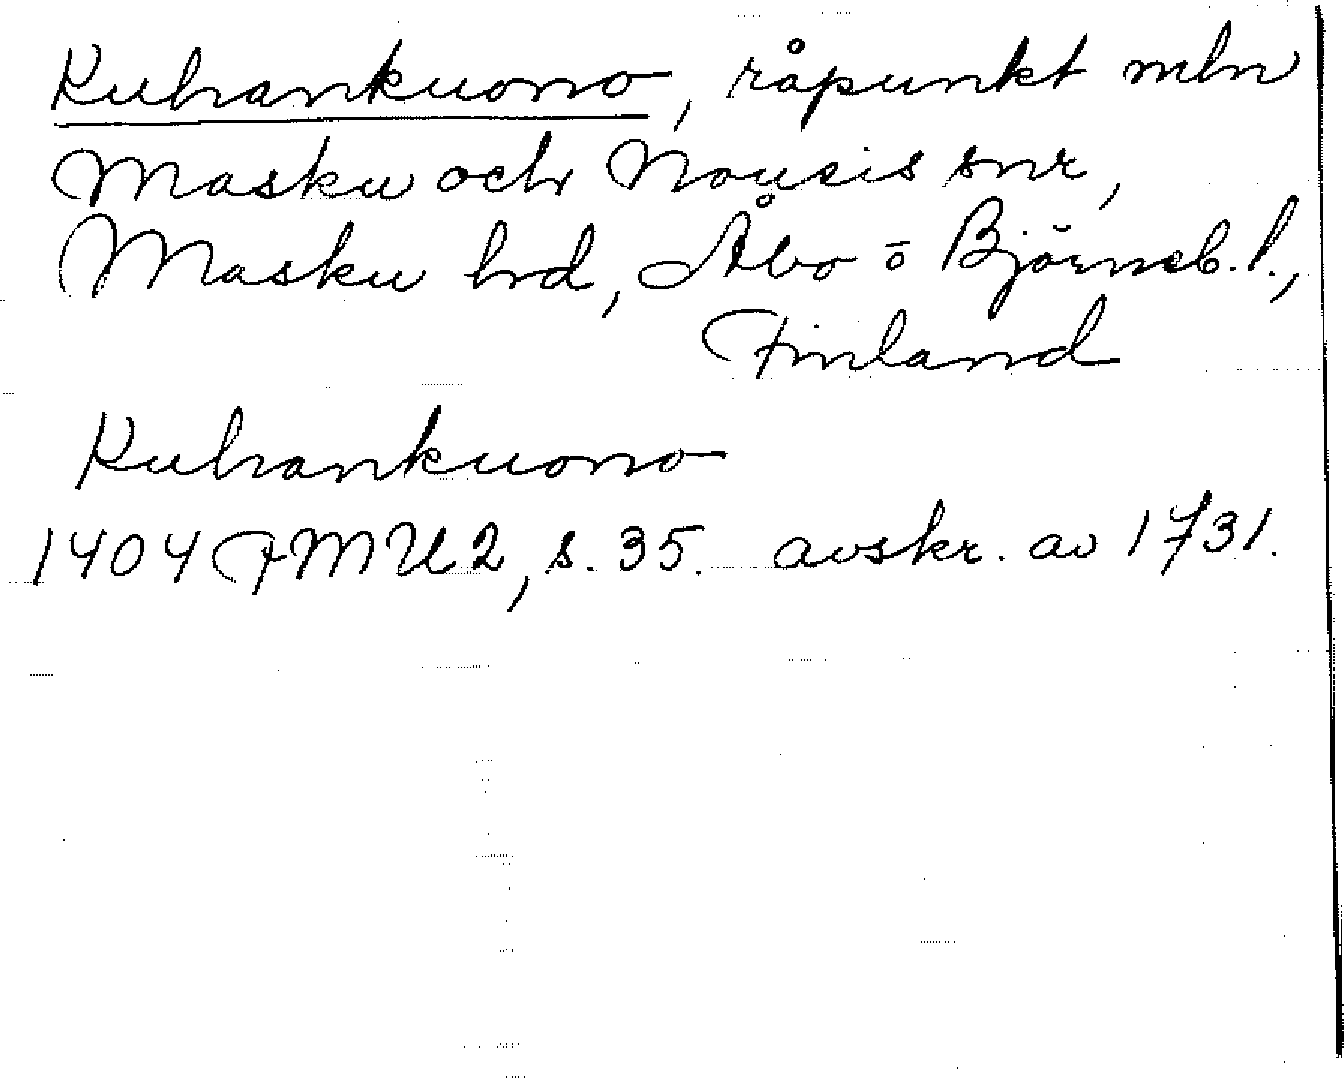 Kuhankuono, råpunkt mln
Masku och Nousis snr,
Masku hd, Åbo ō Björneb. l.,
Finland
Kuhankuono
1404 FMU 2, s. 35. avskr. av 1731.